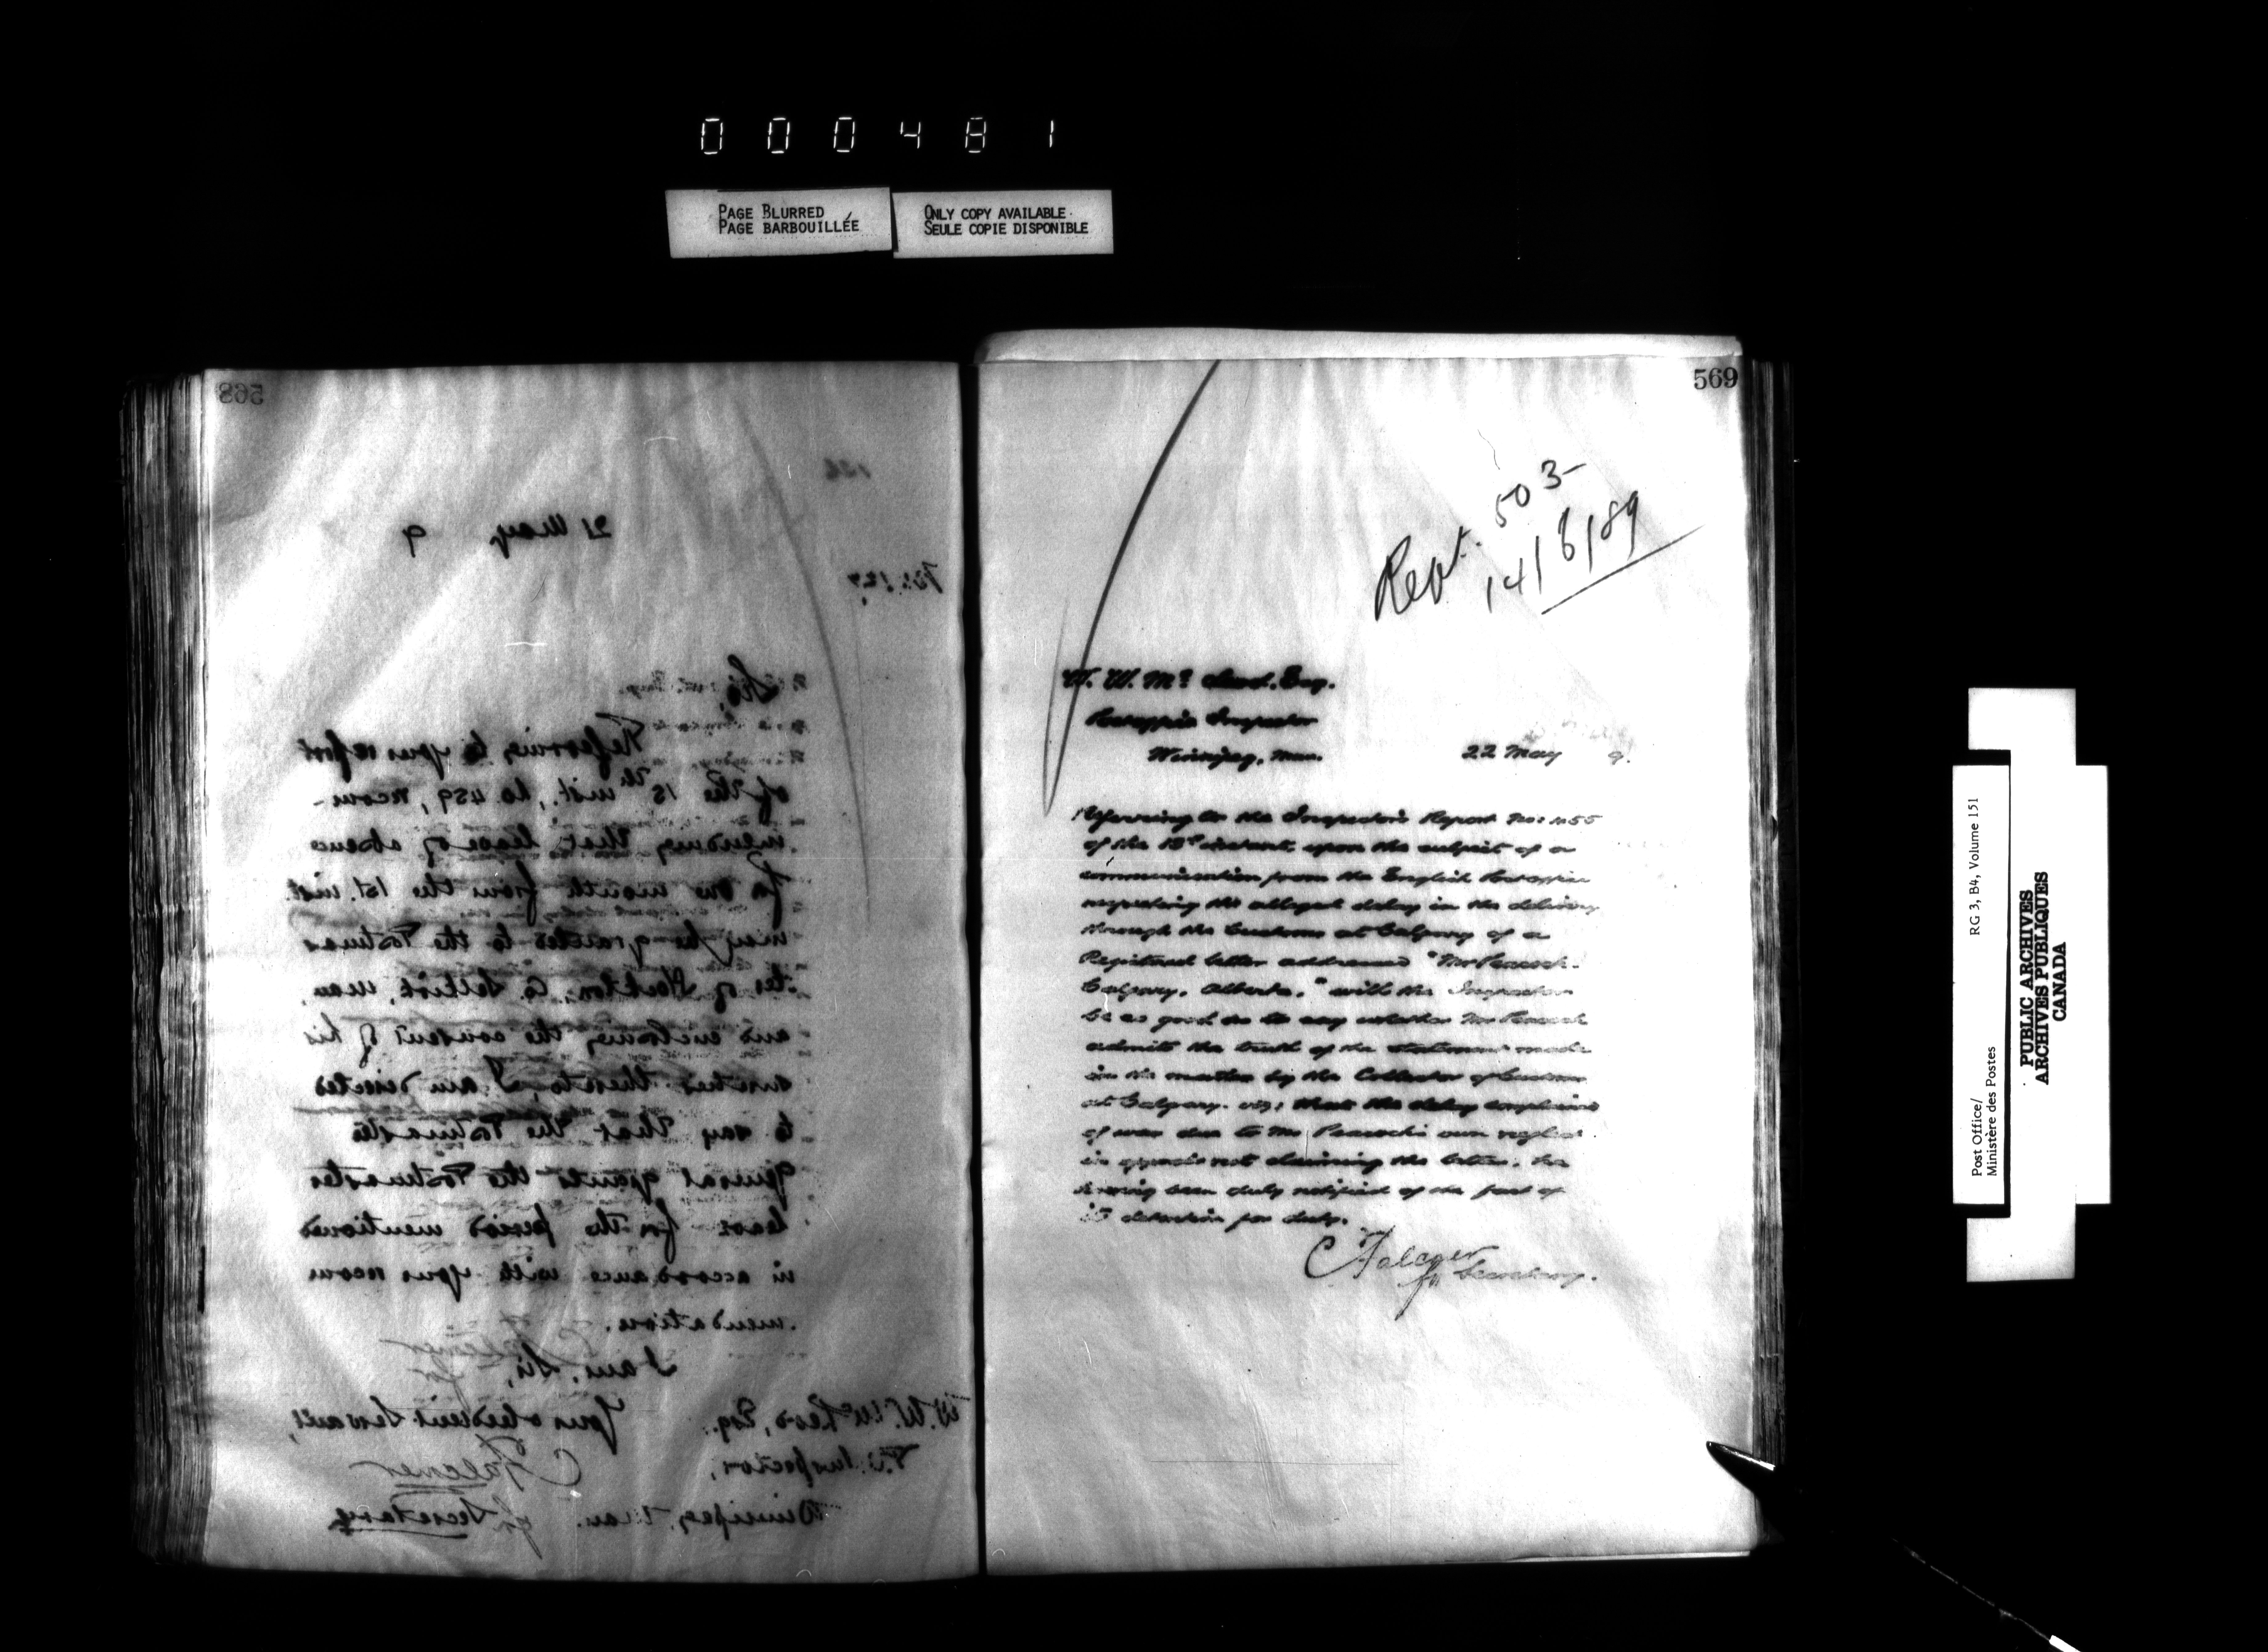 000481
PAGE BLURRED
PAGE BARBOUILLÉE
ONLY COPY AVAILABLE
SEULE COPIE DISPONIBLE
568
21 May 9
Sir,
Referring to your report
of the 15th inst., No 459, recom-
mending that leave of absence
for one month from the 1st. inst.
may be granted to the Postmas
ter of Stockton, Co. Selkirk, Man,
and enclosing the consent of his
sureties thereto, I am directed
to say that the Postmaster
General grants the Postmaster
leave for the period mentioned
in accordance with your recom
mendation.
I am, Sir,
Your obedient Servant,
C Falconer
for Secretary
W. W. McLeod, Esq.
P.O. Inspector,
Winnipeg, Man.
569
Rept. 503-
14/6/89
W. W. Mc Leod. Esq.
Postoffice Inspector
Winnipeg, Man.
22 May 9.
Referring to the Inspector's Report No: 455
of the 13th instant, upon the subject of a
communication from the English Postoffice
respecting the alleged delay in the delivery
through the Customs at Calgary of a
Registered letter addressed "Mr Peacock.
Calgary, Alberta," will the Inspector
be so good as to say whether Mr Peacock
admits the truth of the statement made
in the matter by the Collector of Customs
at Calgary. viz; that the delay complained
of was due to Mr Peacock's own neglect
in not claiming the letter, he
having been duly notified of the fact of
its detention for duty.
C Falconer
for Secretary.
Post Office/
Ministère des Postes
RG 3, B4, Volume 151
PUBLIC ARCHIVES
ARCHIVES PUBLIQUES
CANADA